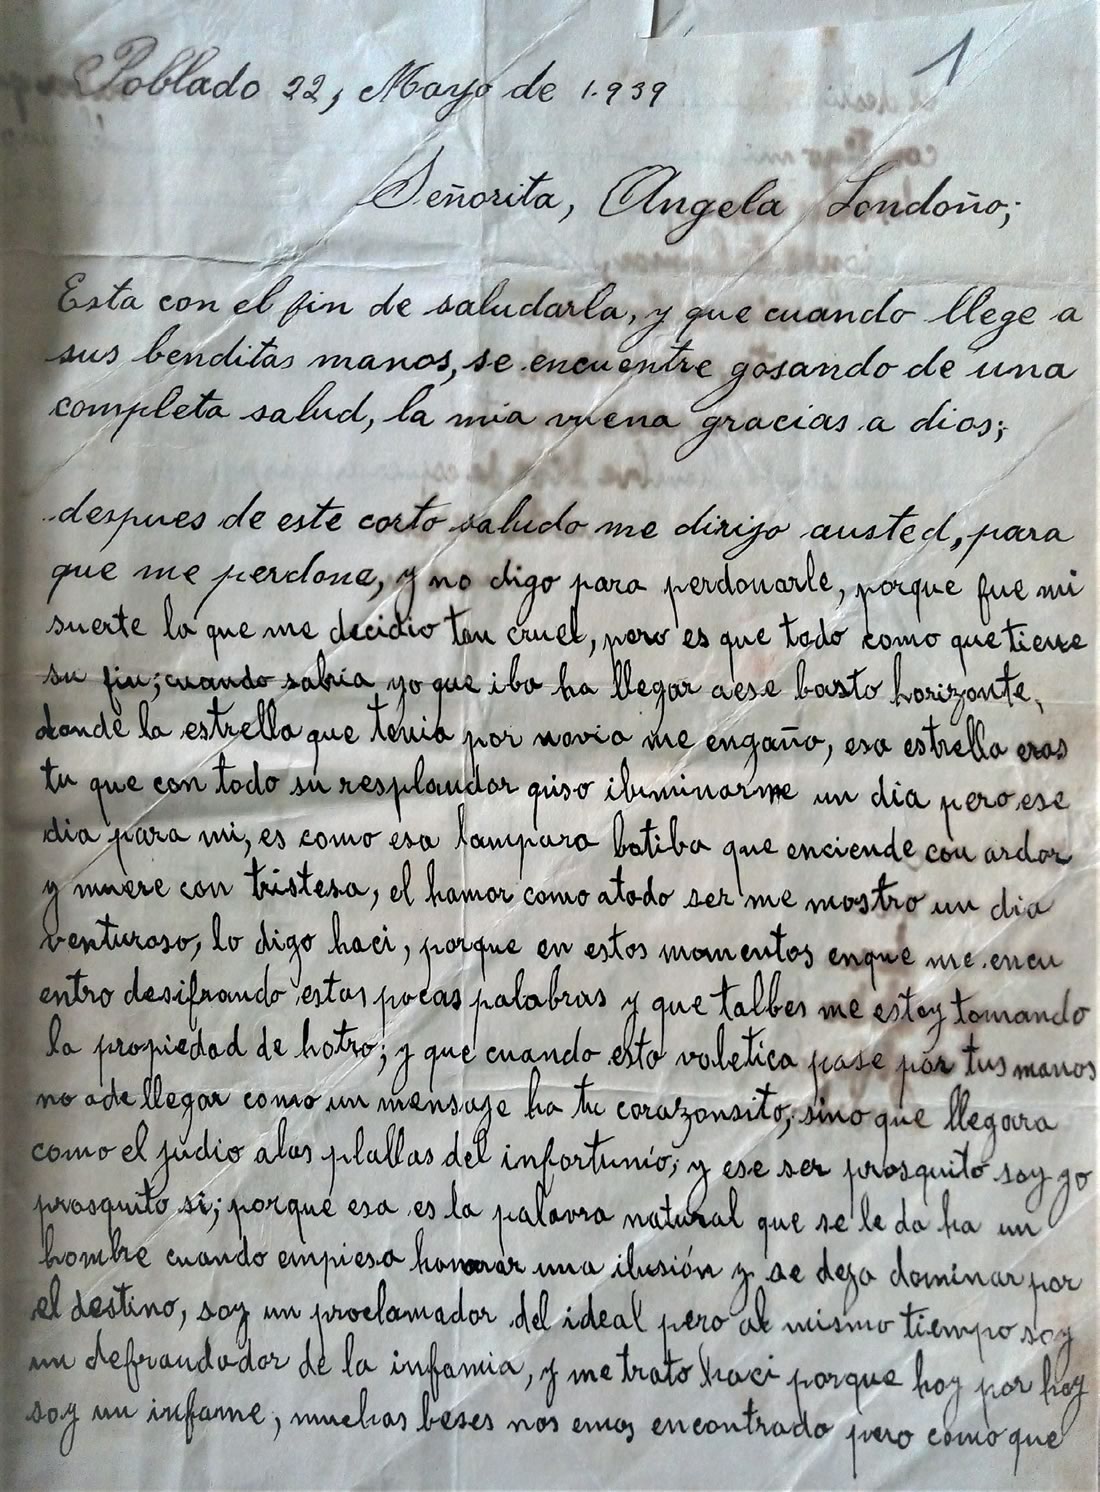 1
Poblado 22, Mayo de 1.939
Señorita, Angela Londoño;
Esta con el fin de saludarla, y que cuando llege a
sus benditas manos, se encuentre gosando de una
completa salud, la mia vuena gracias a dios;
despues de este corto saludo me dirijo austed, para
que me perdone, y no digo para perdonarle, porque fue mi
suerte la que me decidio tan cruel, pero es que todo como que tiene
su fin; cuando sabria yo que iba ha llegar aese basto horizonte,
donde la estrella que tenia por novia me engaño, esa estrella eras
tu que con todo su resplandor quiso iluminarme un dia pero ese
dia para mi, es como esa lampara botiba que enciende con ardor
y muere con tristesa, el hamor como atodo ser me mostro un dia
venturoso, lo digo haci, porque en estos momentos enque me encu
entro desifrando estas pocas palabras y que talbes me estoy tomando
la propiedad de hotro; y que cuando esta voletica pase por tus manos
no ade llegar como un mensaje ha tu corazonsito, sino que llegara
como el judio alas plallas del infortunio; y ese ser prosquito soy yo
prosquito si; porque esa es la palavra natural que se le da ha un
hombre cuando empiesa ha una ilusión y se deja dominar por
el destino, soy un proclamador del ideal pero al mismo tiempo soy
un defraudador de la infamia, y me trato haci porque hoy por hoy
soy un infame, muchas beses nos emos encontrado pero como que